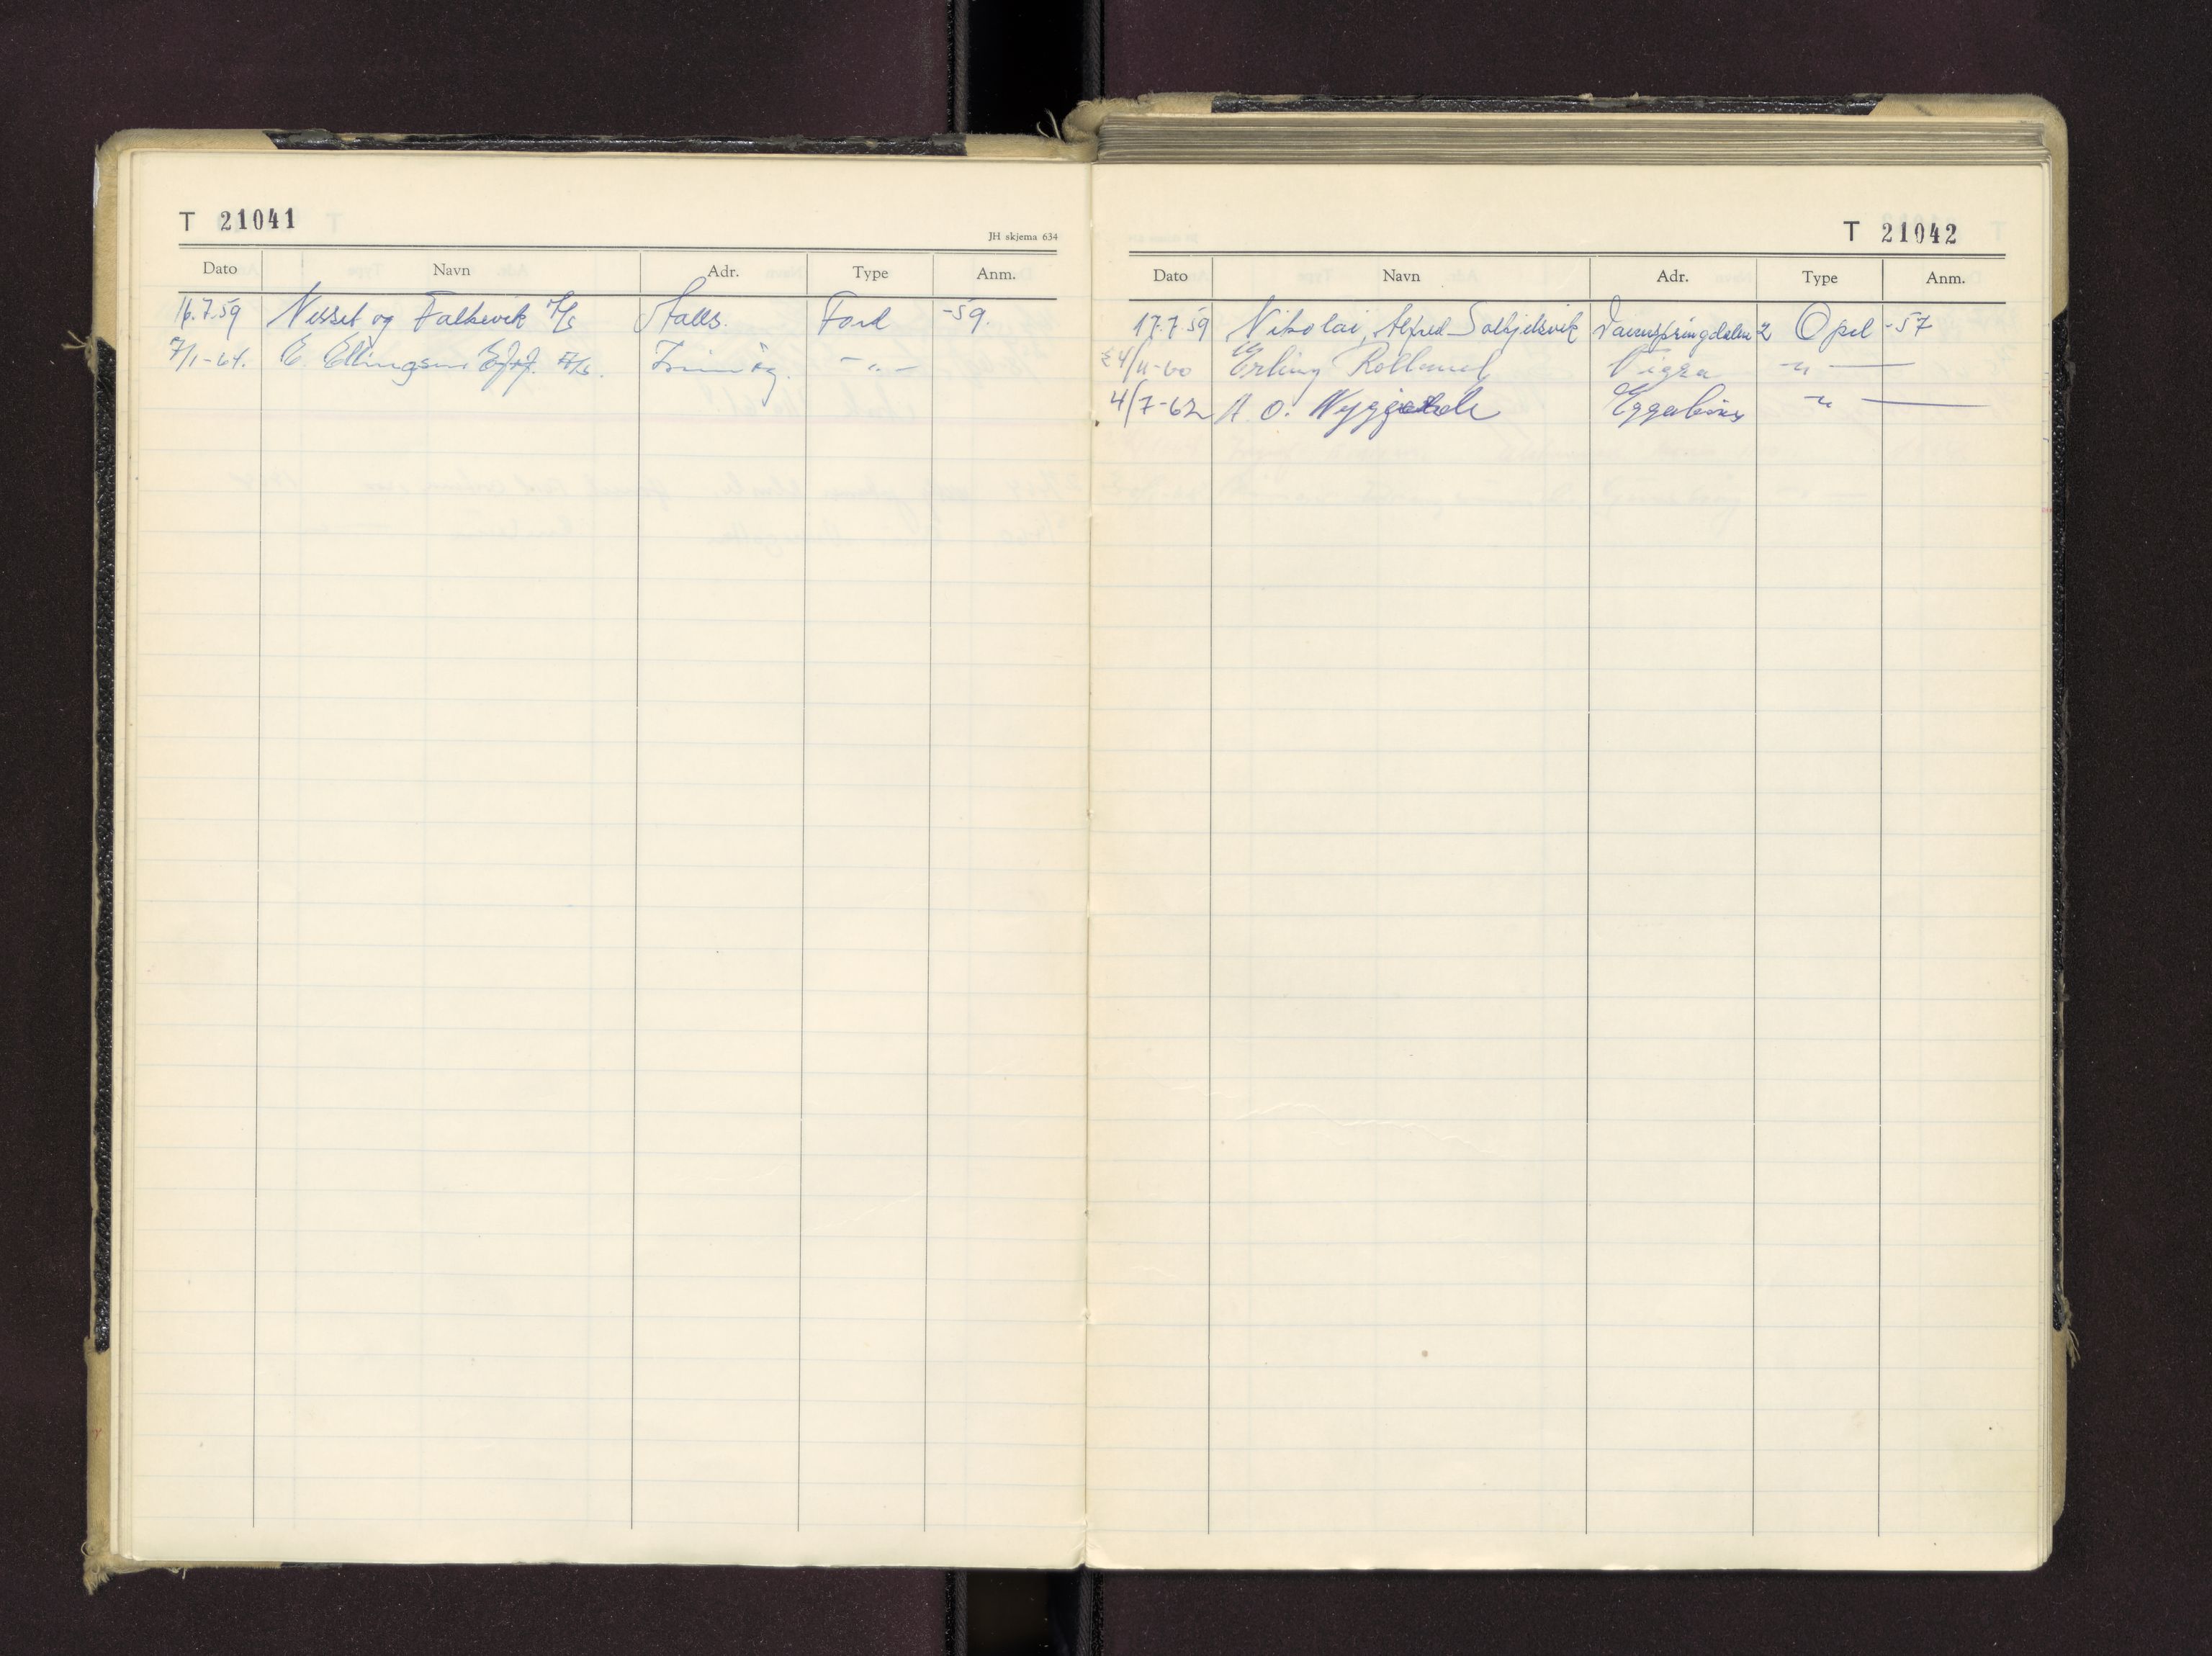 T 21041
JH skjema 634
Dato Navn Adr. Type Anm.
16.7.59 Nesset og Falkevik A/S Ford -59.
7/1-64. E. Ellingsen A/S. -"-
T 21042
Dato Navn Adr. Type Anm.
17.7.59 Nikolai, Alfred Solbjelsvik 2 Opel -57
24/11-60 Erling Vigra -"-
4/7-62 A. O. -"-